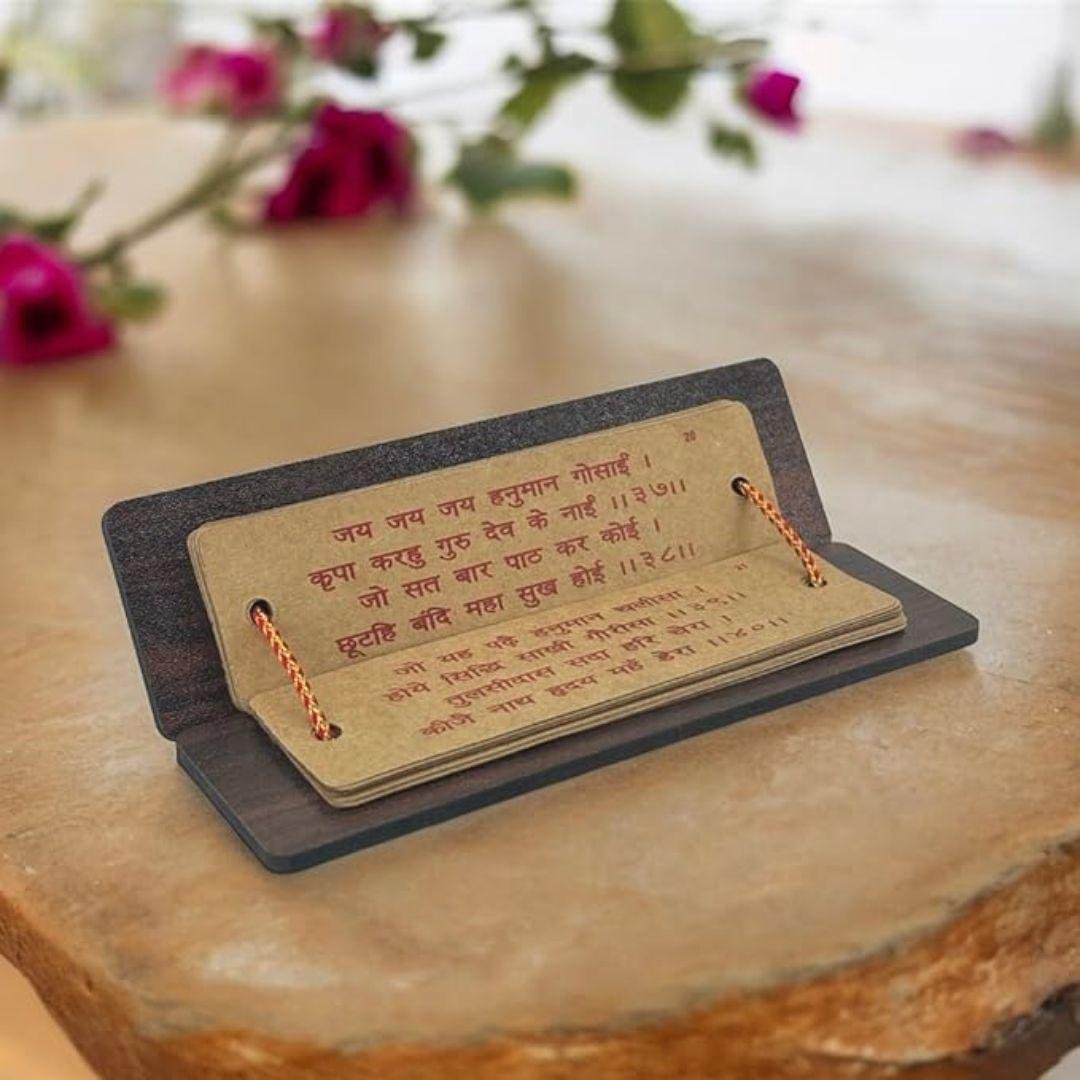 20
जय जय जय हनुमान गोसाईं ।
कृपा करहु गुरु देव के नाईं ।।३७।।
जो सत बार पाठ कर कोई ।
छूटहि बंदि महा सुख होई ।।३८।।
21
जो यह पढ़ै हनुमान चलीसा ।
होये सिखि साखी गौरीसा ।।३९।।
तुलसीदास सदा हरि चेरा ।
कीजै नाथ हृदय महँ डेरा ।।४०।।